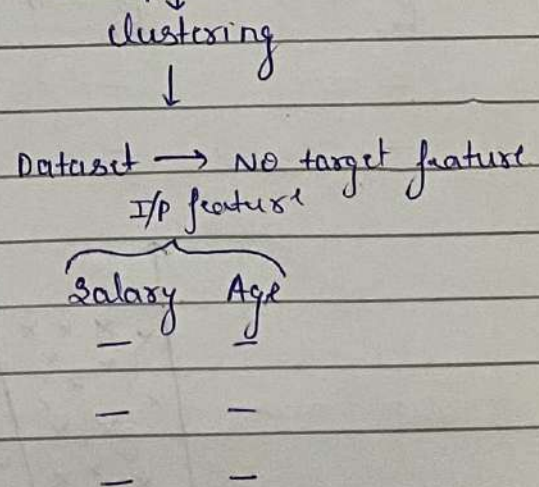 clustering
↓
Dataset → NO target feature
I/P feature
Salary Age
— —
— —
— —